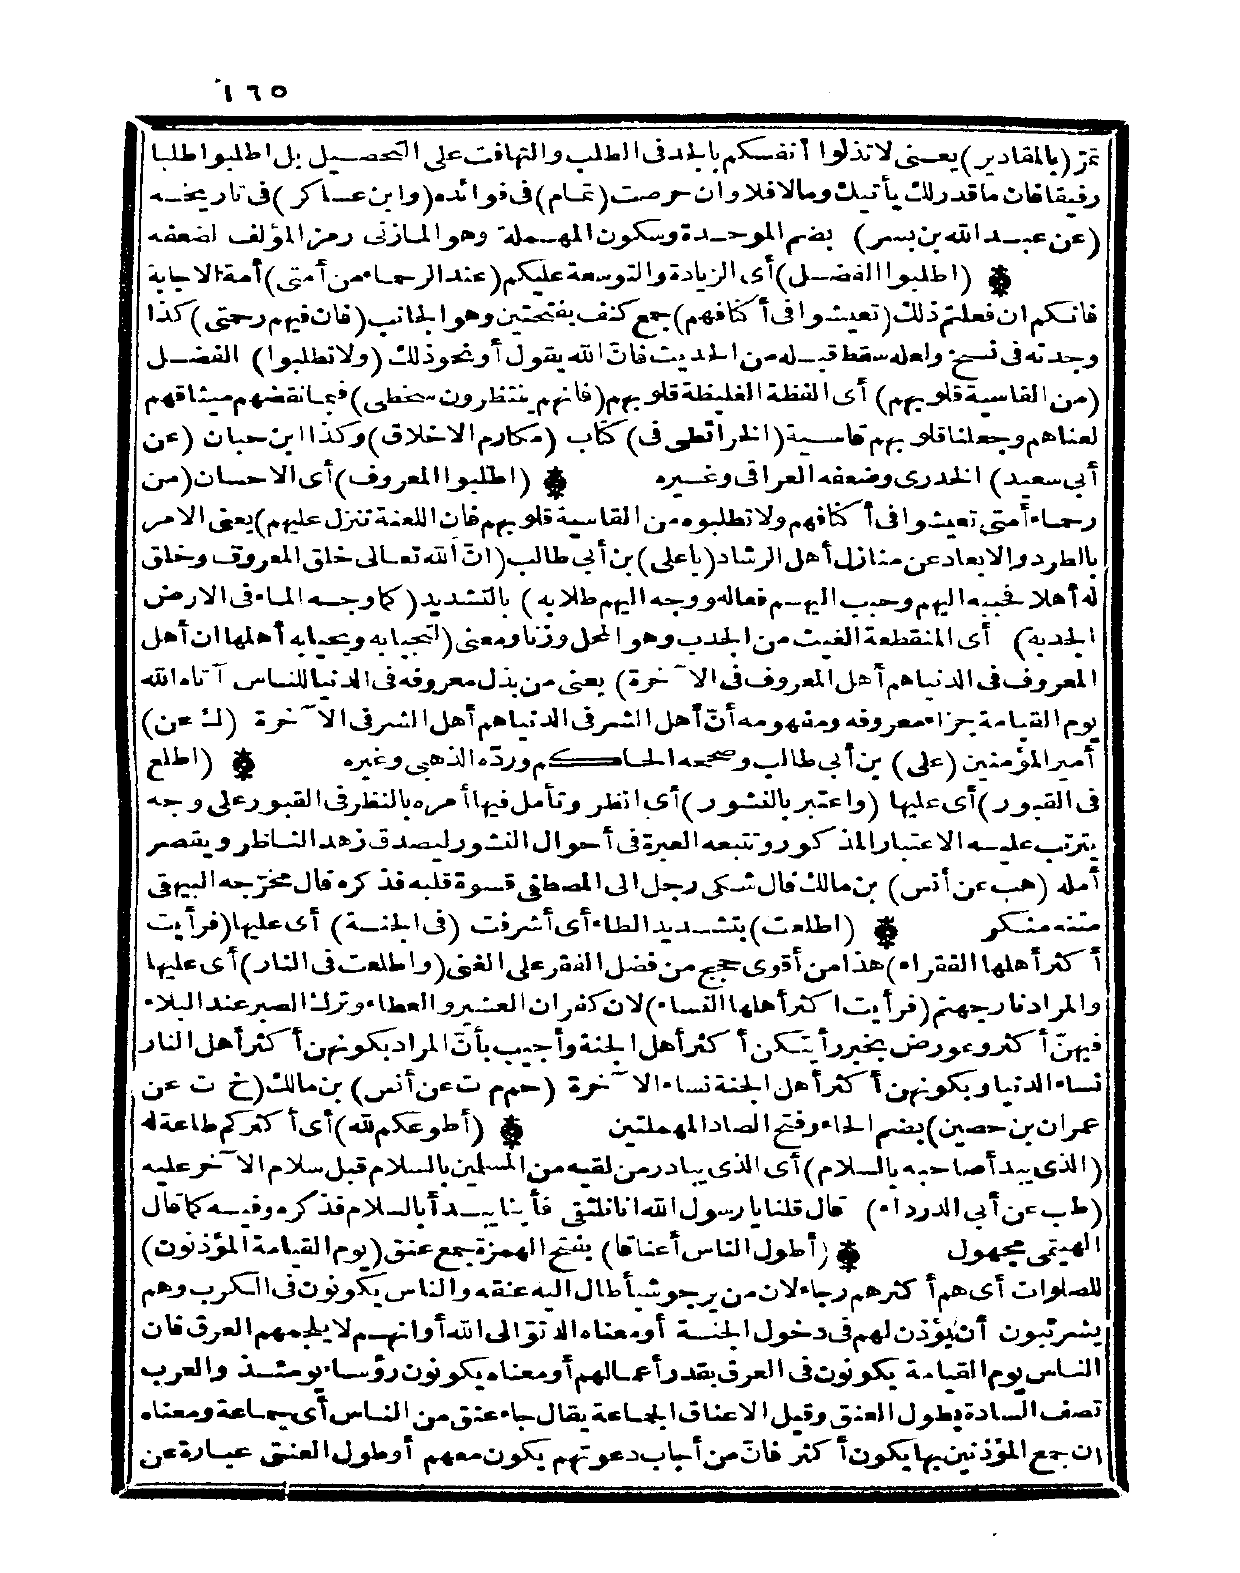 ١٦٥
تمرّ (بالمقادير) يعنى لا تذلوا أنفسكم بالجد فى الطلب والتهافت على التحصيل بل اطلبوا طلبا
رفيقا فان ما قدر لك يأتيك وما لا فلا وان حرصت (تمام) فى فوائده (وابن عساكر) فى تاريخه
(عن عبد الله بن بسر) بضم الموحدة وسكون المهملة وهو المازنى رمز المؤلف لضعفه
(اطلبوا الفضل) أى الزيادة والتوسعة عليكم (عند الرحماء من أمتى) أمة الاجابة
فانكم ان فعلتم ذلك (تعيشوا فى أكنافهم) جمع كنف بفتحتين وهو الجانب (فان فيهم رحمتى) كذا
وجدته فى نسخ ولعله سقط قبله من الحديث فانّ الله يقول أو نحو ذلك (ولا تطلبوا) الفضل
(من القاسية قلوبهم) أى الفظة الغليظة قلوبهم (فانهم ينتظرون سخطى) فبما نقضهم ميثاقهم
لعناهم وجعلنا قلوبهم قاسية (الخرائطى فى) كتاب (مكارم الاخلاق) وكذا ابن حبان (عن
أبى سعيد) الخدرى وضعفه العراقى وغيره (اطلبوا المعروف) أى الاحسان (من
رحماء أمتى تعيشوا فى أكنافهم ولا تطلبوه من القاسية قلوبهم فان اللعنة تنزل عليهم) يعنى الامر
بالطرد والابعاد عن منازل أهل الرشاد (يا على) بن أبى طالب (انّ الله تعالى خلق المعروف وخلق
له أهلا فحببه اليهم وحبب اليهم فعاله ووجه اليهم طلابه) بالتشديد (كما وجه الماء فى الارض
الجدبة) أى المنقطعة الغيث من الجدب وهو المحل وزنا ومعنى (لتحيا به ويحيا به أهلها ان أهل
المعروف فى الدنيا هم أهل المعروف فى الآخرة) يعنى من بذل معروفه فى الدنيا للناس آتاه الله
يوم القيامة جزاء معروفه ومفهومه أنّ أهل الشر فى الدنيا هم أهل الشر فى الآخرة (ك عن)
أمير المؤمنين (على) بن أبى طالب وصححه الحاكم وردّه الذهبى وغيره (اطلع
فى القبور) أى عليها (واعتبر بالنشور) أى انظر وتأمل فيها أمره بالنظر فى القبور على وجه
يترتب عليه الاعتبار المذكور وتتبعه العبرة فى أحوال النشور ليصدق زهد الناظر ويقصر
أمله (هب عن أنس) بن مالك قال شكى رجل الى المصطفى قسوة قلبه فذكره قال مخرّجه البيهقى
متنه منكر (اطلعت) بتشديد الطاء أى أشرفت (فى الجنة) أى عليها (فرأيت
أكثر أهلها الفقراء) هذا من أقوى حجج من فضل الفقر على الغنى (واطلعت فى النار) أى عليها
والمراد نار جهنم (فرأيت اكثر أهلها النساء) لان كفران العشير والعطاء وترك الصبر عند البلاء
فيهنّ أكثر وعورض بخبر رأيتكن أكثر أهل الجنة وأجيب بأنّ المراد بكونهن أكثر أهل النار
نساء الدنيا وبكونهن أكثر أهل الجنة نساء الآخرة (حم م ت عن أنس) بن مالك (خ ت عن
عمران بن حصين) بضم الحاء وفتح الصاد المهملتين (أطوعكم لله) أى أكثركم طاعة له
(الذى يبدأ صاحبه بالسلام) أى الذى يبادر من لقيه من المسلمين بالسلام قبل سلام الآخر عليه
(طب عن أبى الدرداء) قال قلنا يا رسول الله انا نلتقى فأينا يبدأ بالسلام فذكره وفيه كما قال
الهيتمى مجهول (أطول الناس أعناقا) بفتح الهمزة جمع عنق (يوم القيامة المؤذنون)
للصلوات أى هم أكثرهم رجاء لان من يرجو شيأ طال اليه عنقه والناس يكونون فى الكرب وهم
يشرئبون أن يؤذن لهم فى دخول الجنة أو معناه الدنوّ الى الله أو انهم لا يلجمهم العرق فان
الناس يوم القيامة يكونون فى العرق بقدر أعمالهم أو معناه يكونون رؤساء يومئذ والعرب
تصف السادة بطول العنق وقيل الاعناق الجماعة يقال جاء عنق من الناس أى جماعة ومعناه
ان جمع المؤذنين بها يكون أكثر فانّ من أجاب دعوتهم يكون معهم أو طول العنق عبارة عن